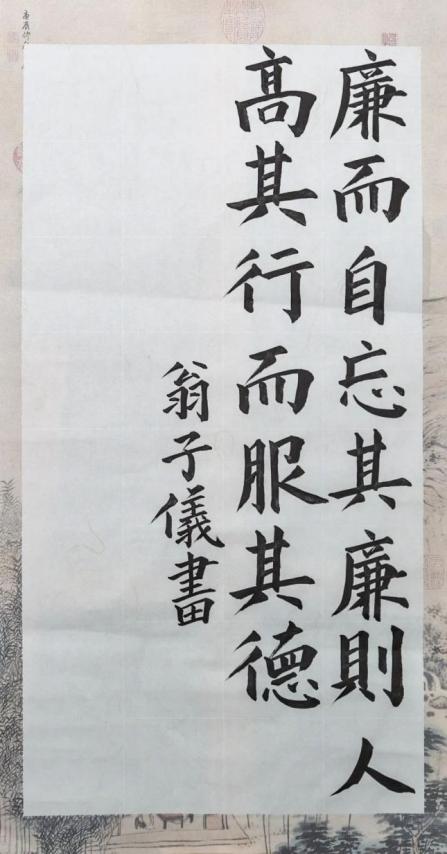 廉而自忘其廉則人
高其行而服其德
翁子儀畫